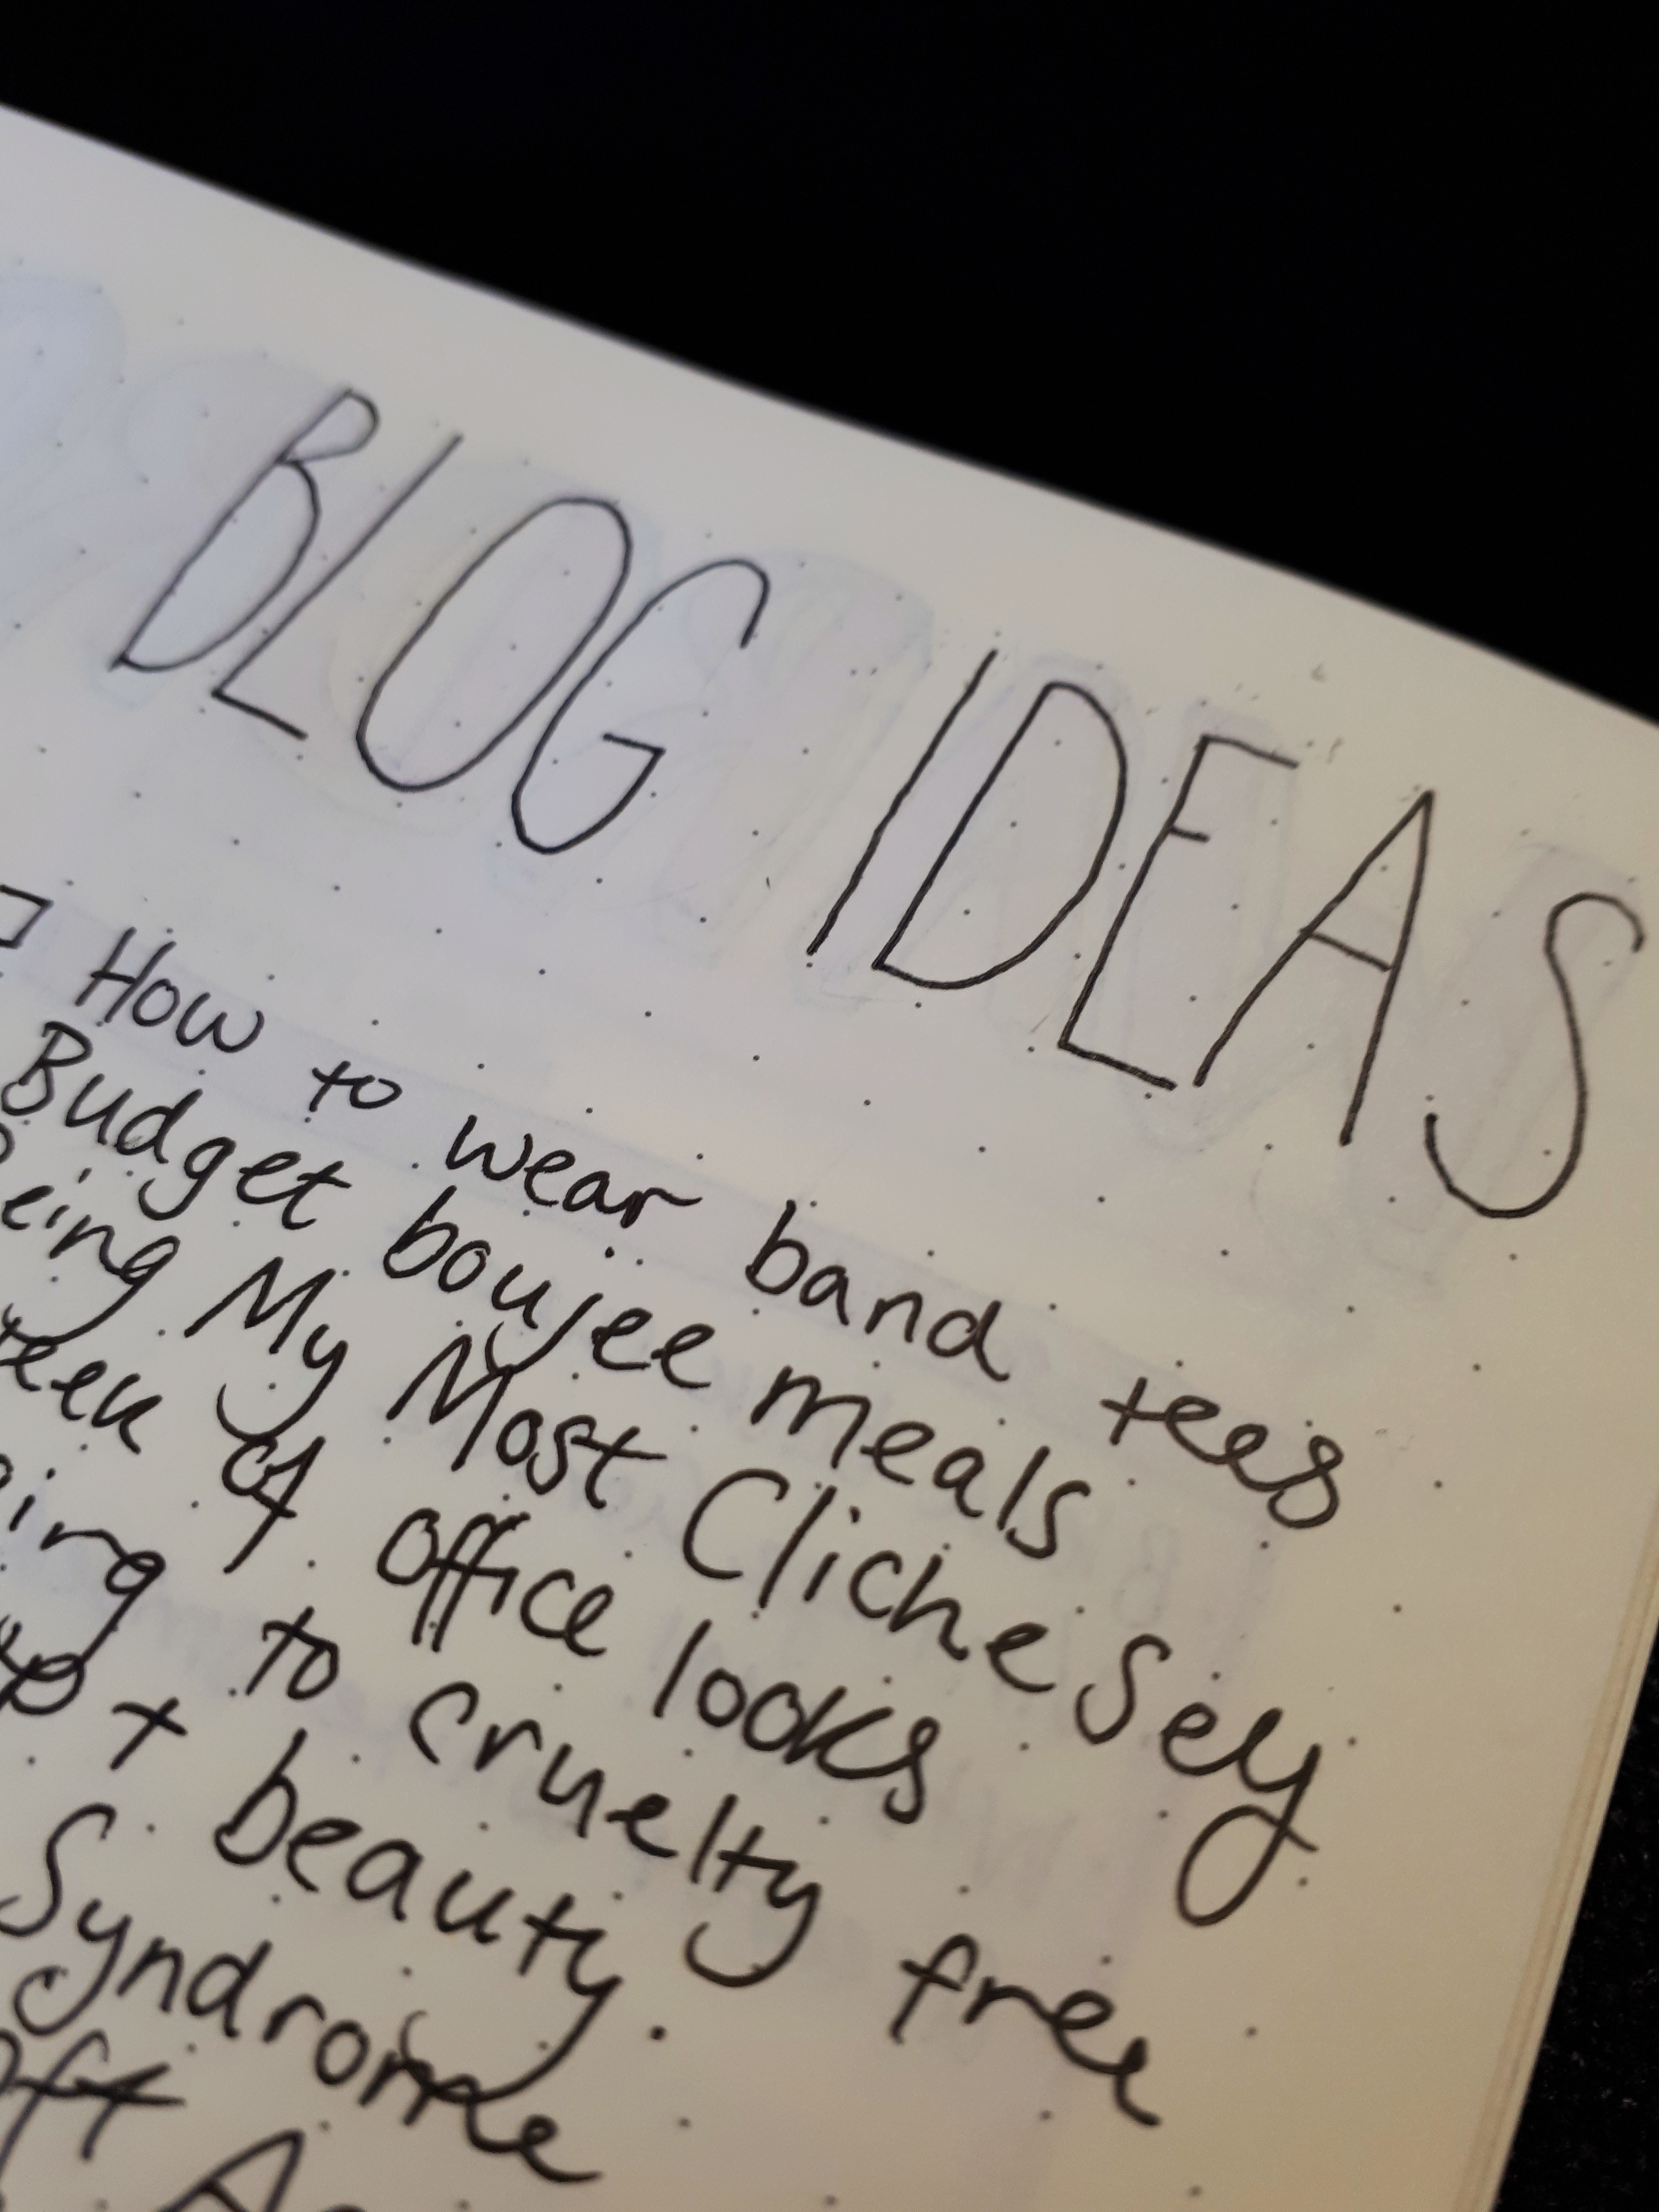 BLOG IDEAS
How to wear band tees
Budget boujee meals
eing My Most Cliche Sely
eek of office looks
ing to cruelty free
+ beauty.
Syndrome